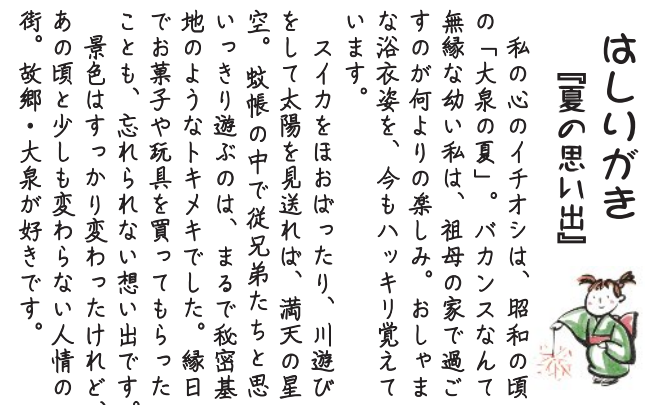 はしりがき
『夏の思い出』
私の心のイチオシは、昭和の頃
の「大泉の夏」。バカンスなんて
無縁な幼い私は、祖母の家で過ご
すのが何よりの楽しみ。おしゃま
な浴衣姿を、今もハッキリ覚えて
います。
スイカをほおばったり、川遊び
をして太陽を見送れば、満天の星
空。蚊帳の中で従兄弟たちと思
いっきり遊ぶのは、まるで秘密基
地のようなトキメキでした。縁日
でお菓子や玩具を買ってもらった
ことも、忘れられない想い出です。
景色はすっかり変わったけれど、
あの頃と少しも変わらない人情の
街。故郷・大泉が好きです。